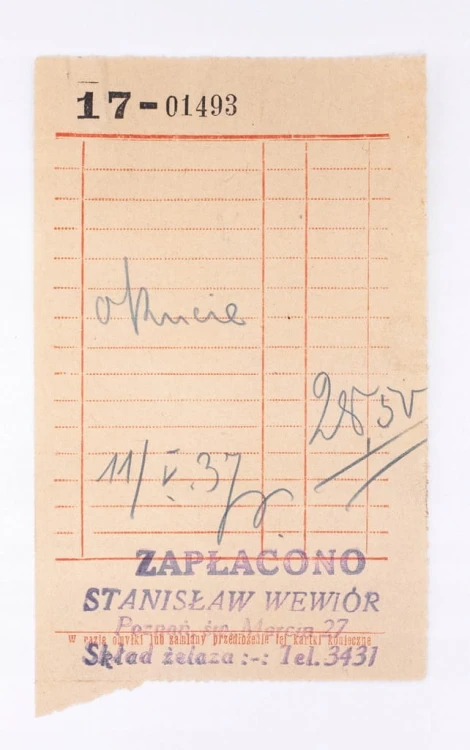 17-01493
okucie
28,50
11/V.37
ZAPŁACONO
STANISŁAW WEWIÓR
Poznań, św. Marcin 27
w razie omyłki lub zamiany przedłożenie tej kartki konieczne
Skład żelaza :-: Tel. 3431